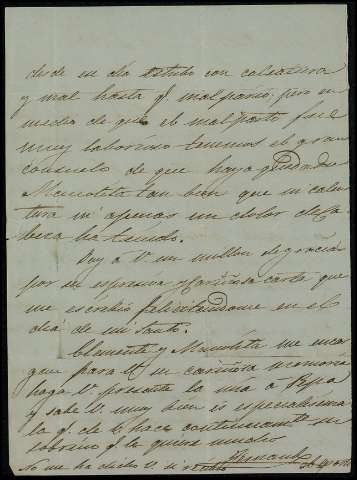 desde ese dia estubo con calentura
y mal hasta q.e malparió; pero en
medio de que el malparto fue
muy laborioso tenemos el gran
consuelo de que haya quedado
Manolita tan bien que ni calen
tura ni apenas un dolor de ca
beza ha tenido.
Doy a V. un millon de gracias
por su espresiva y cariñosa carta que
me escribió felicitandome en el
dia de mi santo.
Clemente y Manolita me encar
gan para V. su cariñosa memoria
haga V. presente la mia a Pepa
y sabe V. muy bien es especialisima
la q.e le hace continuam.te su
sobrino q.e le quiere mucho
Fernando
No me ha dicho V. si recibio